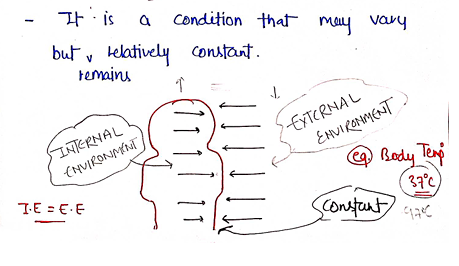 - It is a condition that may vary
but remains relatively constant.
INTERNAL ENVIRONMENT
EXTERNAL ENVIRONMENT
eg. Body Temp
37°C
I.E = E.E
Constant